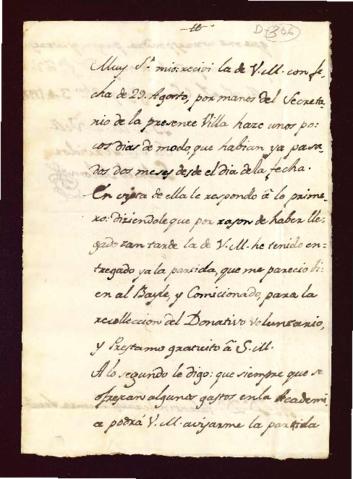 Muy S.r mio: recivi la de V.M. con fe,
cha de 29. Agosto, por manos del Secreta,
rio de la presente Villa haze unos po,
cos dias de modo, que habian ya pasa,
dos dos meses desde el dia de la fecha.
En vista de ella le respondo â lo prime,
ro: diziendole que por rason de haber lle,
gado tan tarde la de V.M. he tenido en,
tregado ya la partida, que me pareciô bi,
en al Bayle, y Comicionado, para la
recolleccion del Donativo Voluntario,
y Prestamo gratuito â S.M.
A lo segundo le digo: que siempre que se
ofrezcan algunos gastos en la Academi,
a podrà V.M. avisarme la partida